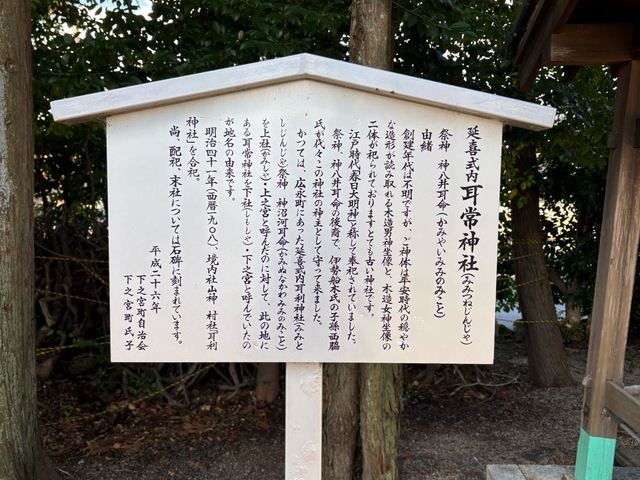 延喜式内 耳常神社(みみつねじんじゃ)
祭神 神八井耳命(かみやいみみのみこと)
由緒
創建年代は不明ですが、ご神体は平安時代の穏やか
な造形が読み取れる木造男神坐像と、木造女神坐像の
二体が祀られておりますとても古い神社です。
江戸時代「春日大明神」と称して奉祀されていました。
祭神、神八井耳命の後裔で、伊勢船木氏の子孫西脇
氏が代々この神社の神主として守って来ました。
かつては、広永町にあった延喜式内耳利神社(みみと
しじんじゃ)祭神 神沼河耳命(かみぬなかわみみのみこと)
を上社(かみしゃ)・上之宮と呼んだのに対して、此の地に
ある耳常神社を下社(しもしゃ)・下之宮と呼んでいたの
が地名の由来です。
明治四十一年(西暦一九〇八) 境内社山神、村社「耳利
神社」を合祀。
尚、配祀、末社については石碑に刻まれています。
平成二十六年
下之宮町自治会
下之宮町氏子